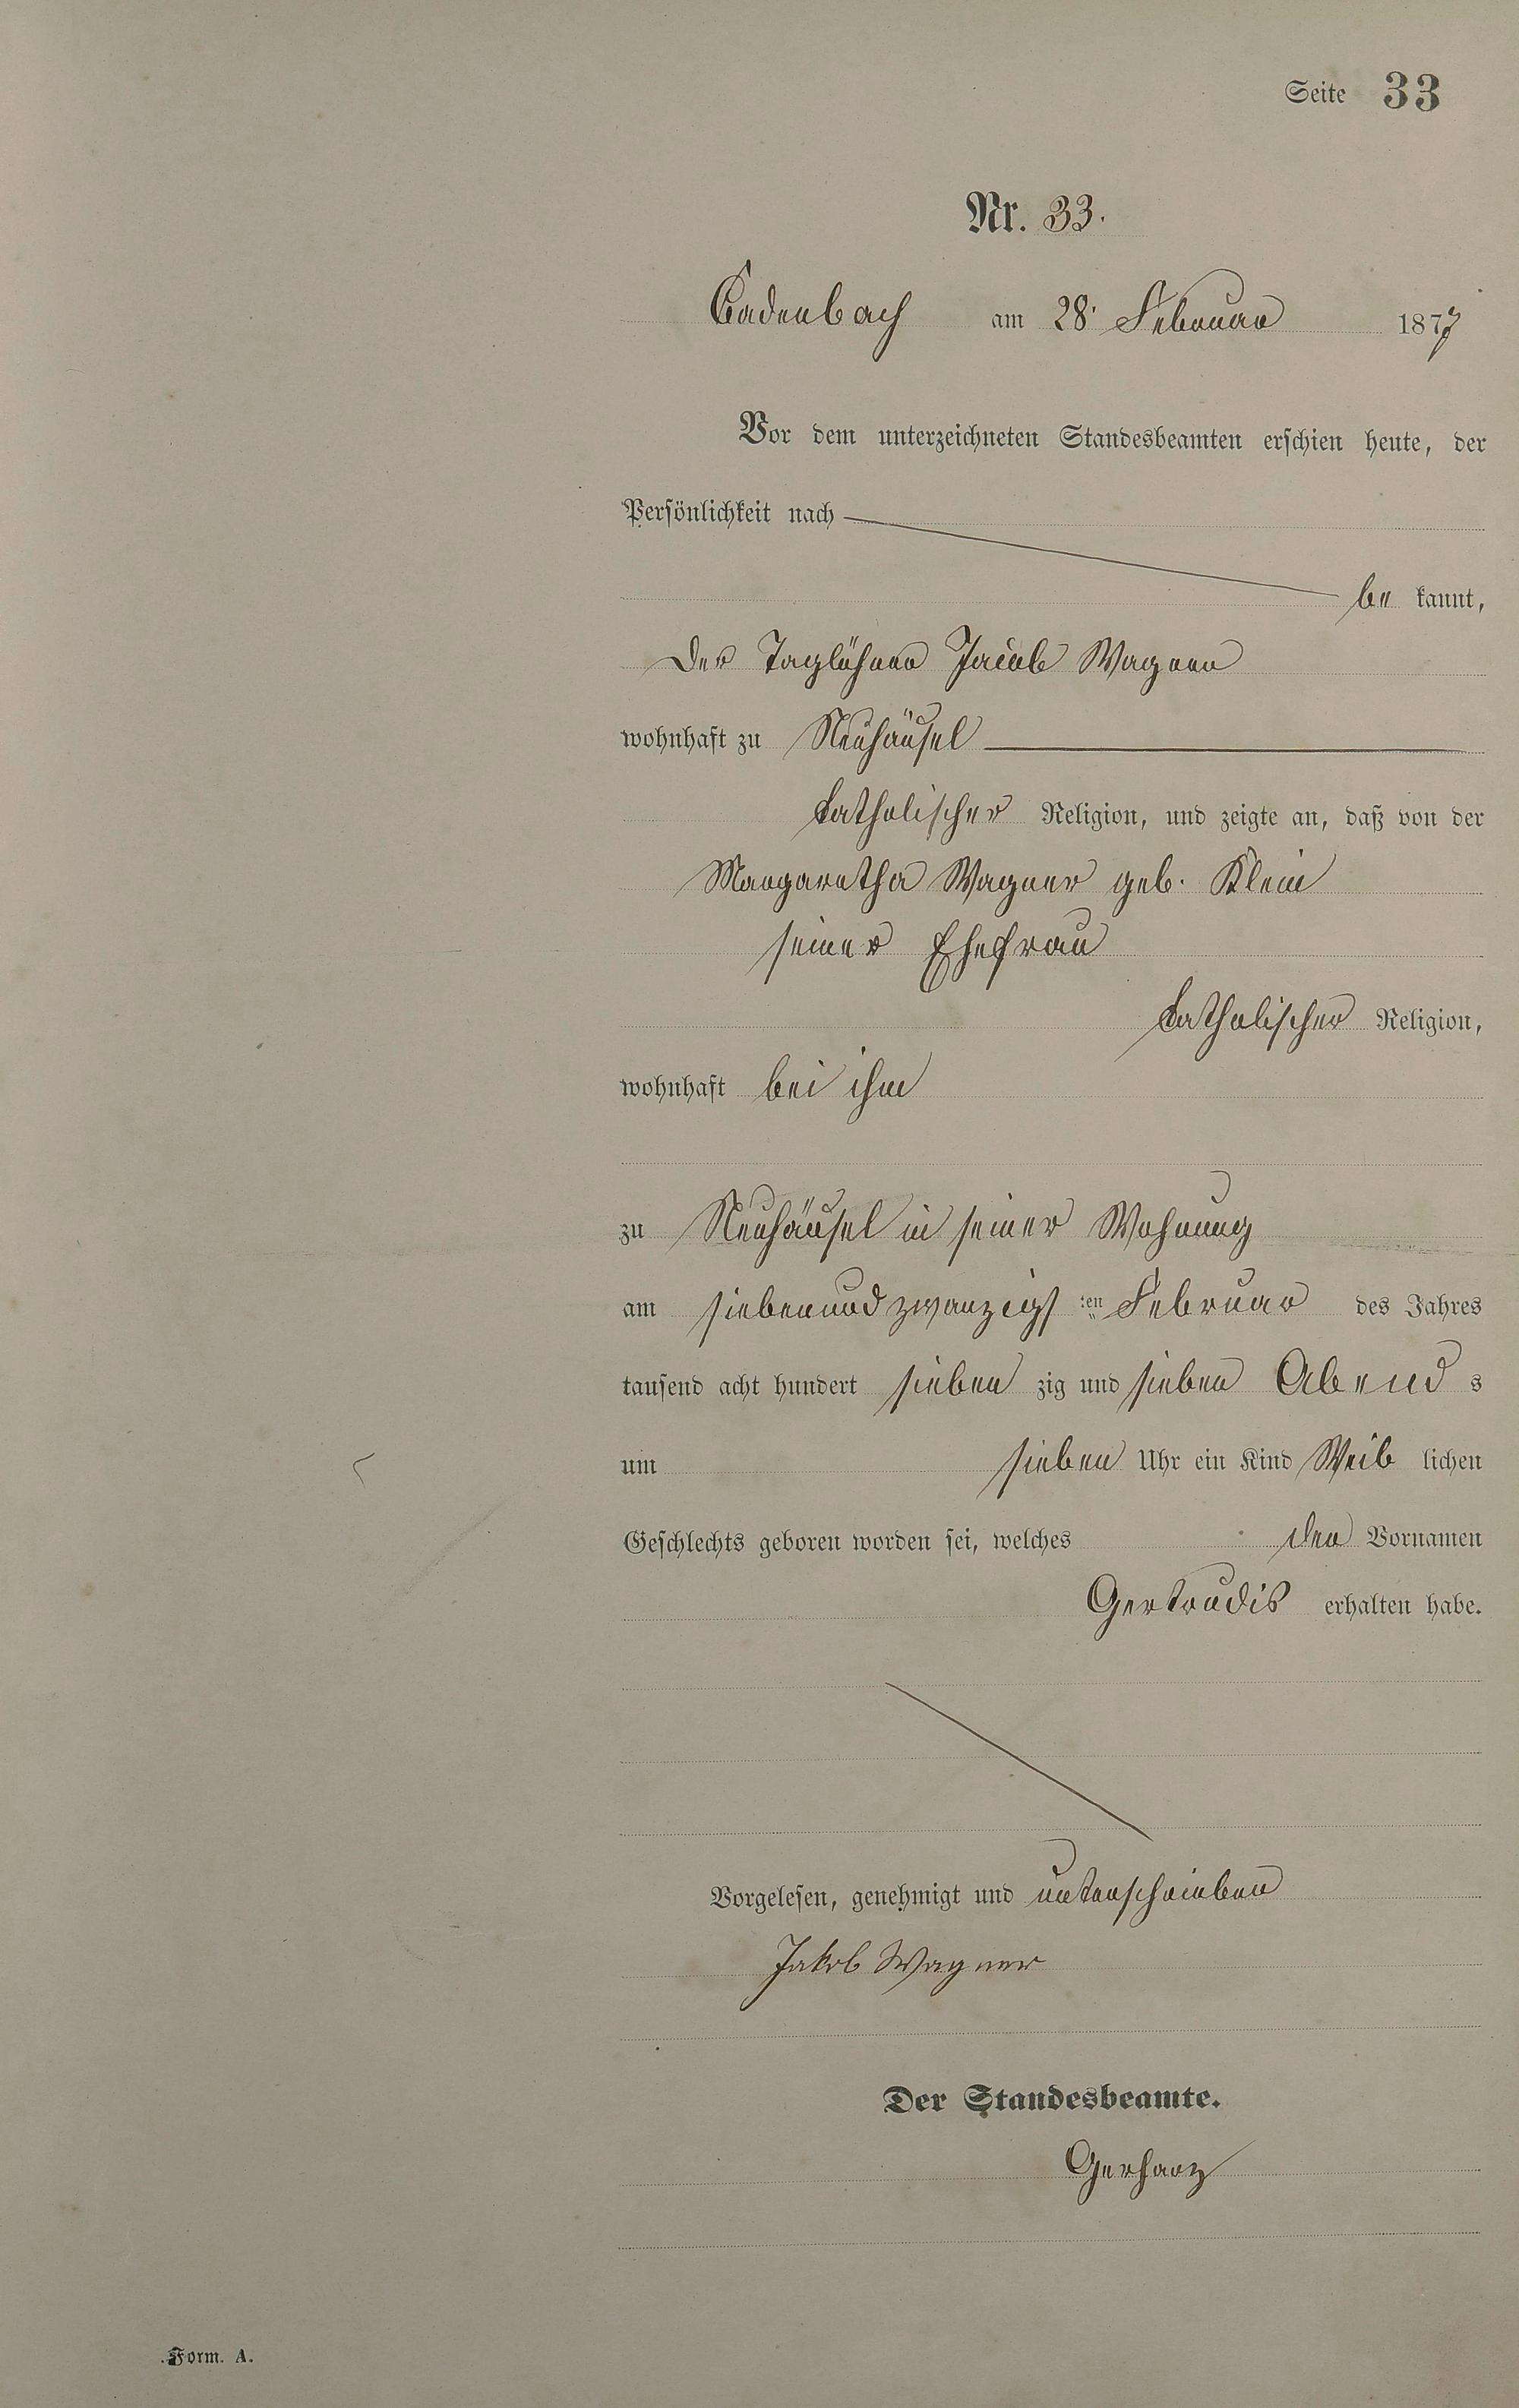 Seite 33
Nr. 33.
Cadenbach am 28. Februar 1877
Vor dem unterzeichneten Standesbeamten erschien heute, der
Persönlichkeit nach
be kannt,
der Taglöhner Jacob Wagner
wohnhaft zu Neuhäusel
katholischer Religion, und zeigte an, daß von der
Margaretha Wagner geb. Klein
seiner Ehefrau
katholischer Religion,
wohnhaft bei ihm
zu Neuhäusel in seiner Wohnung
am siebenundzwanzigs ten Februar des Jahres
tausend acht hundert sieben zig und sieben Abend s
um sieben Uhr ein Kind Weib lichen
Geschlechts geboren worden sei, welches den Vornamen
Gertrudis erhalten habe.
Vorgelesen, genehmigt und unterschrieben
Jakob Wagner
Der Standesbeamte.
Gerharz
Form. A.